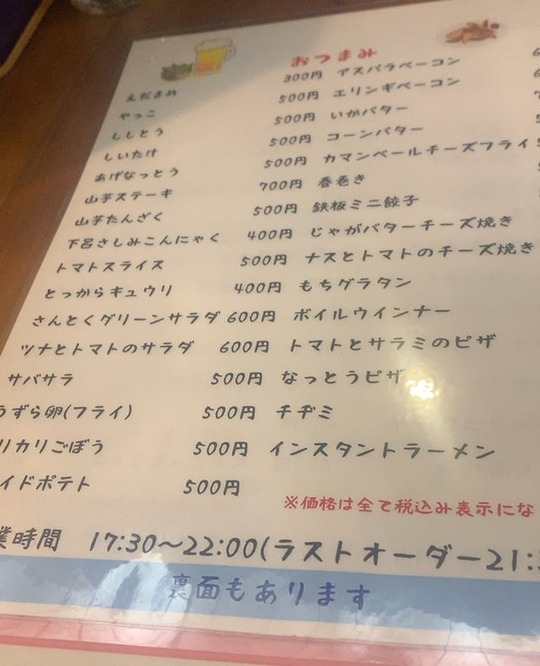 おつまみ
えだまめ 300円 アスパラベーコン
やっこ 500円 エリンギベーコン
ししとう 500円 いかバター
しいたけ 500円 コーンバター
あげなっとう 500円 カマンベールチーズフライ
山芋ステーキ 700円 春巻き
山芋たんざく 500円 鉄板ミニ餃子
下呂さしみこんにゃく 400円 じゃがバターチーズ焼き
トマトスライス 500円 ナスとトマトのチーズ焼き
とっからキュウリ 400円 もちグラタン
さんとくグリーンサラダ 600円 ボイルウインナー
ツナとトマトのサラダ 600円 トマトとサラミのピザ
サバサラ 500円 なっとうピザ
うずら卵(フライ) 500円 チヂミ
リカリごぼう 500円 インスタントラーメン
イドポテト 500円
※価格は全て税込み表示にな
業時間 17:30～22:00(ラストオーダー21:
裏面もあります